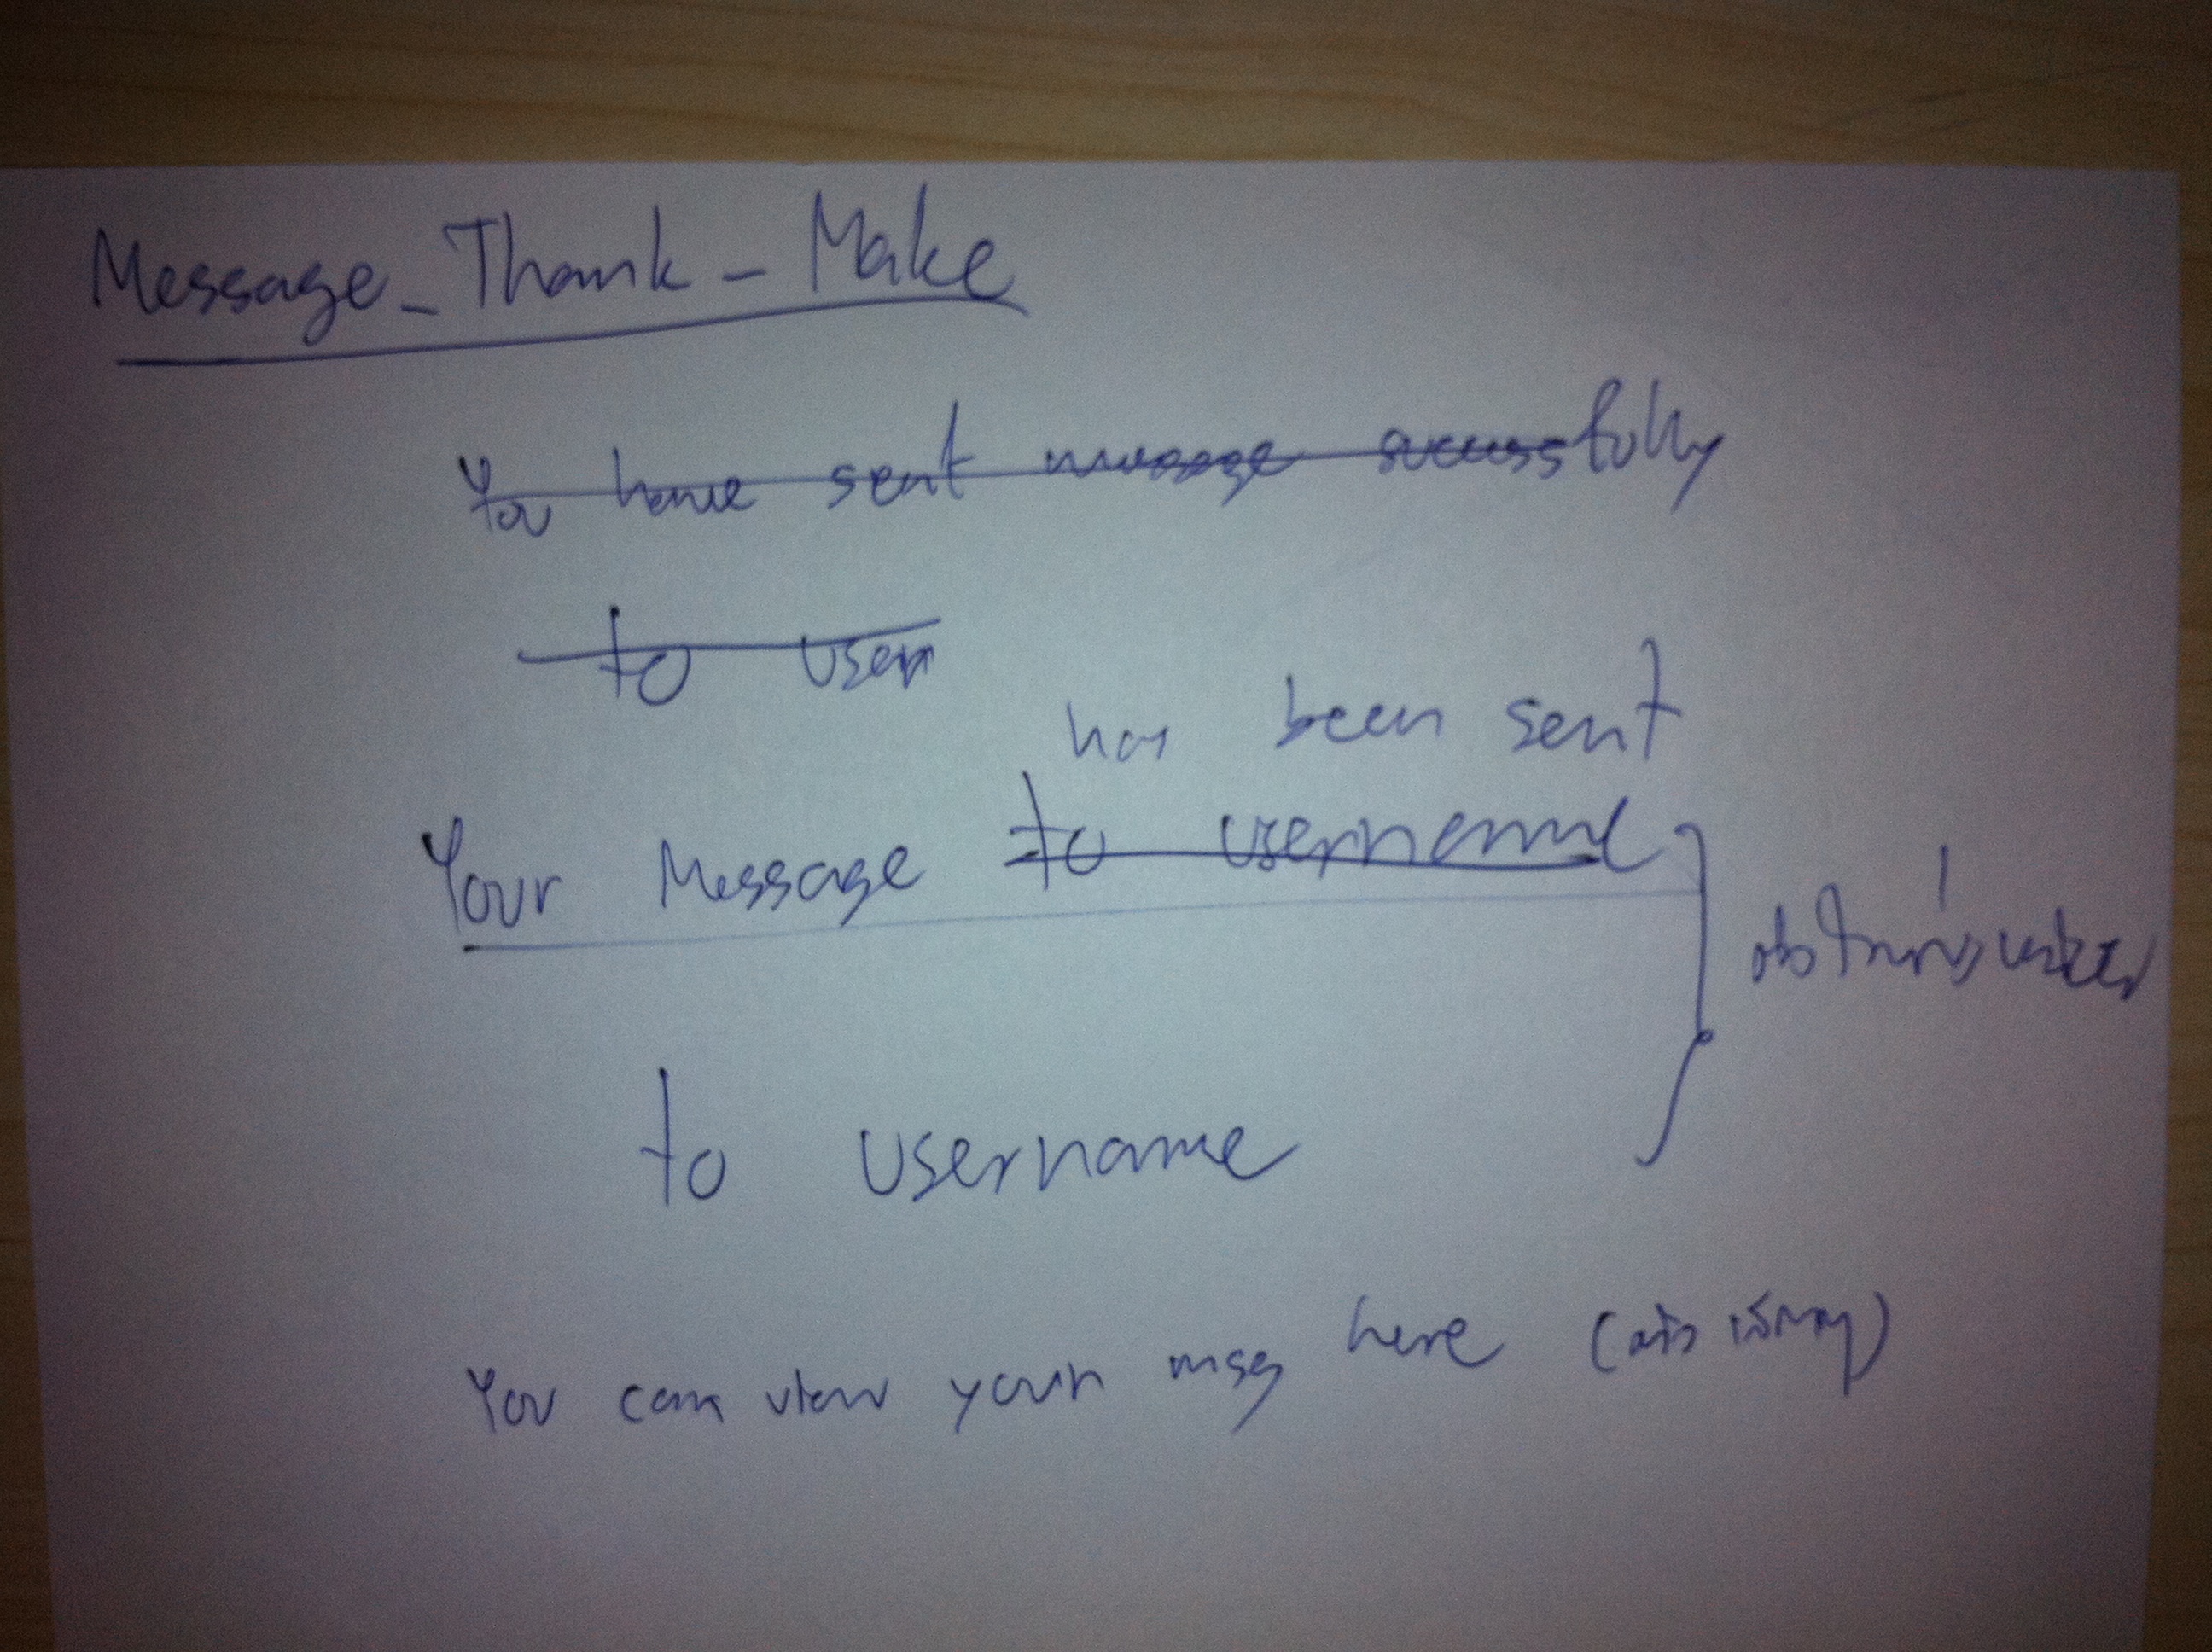 Message - Thank - Make
You have sent message successfully
to user
has been sent
Your Message to username
to username
You can view your msg here